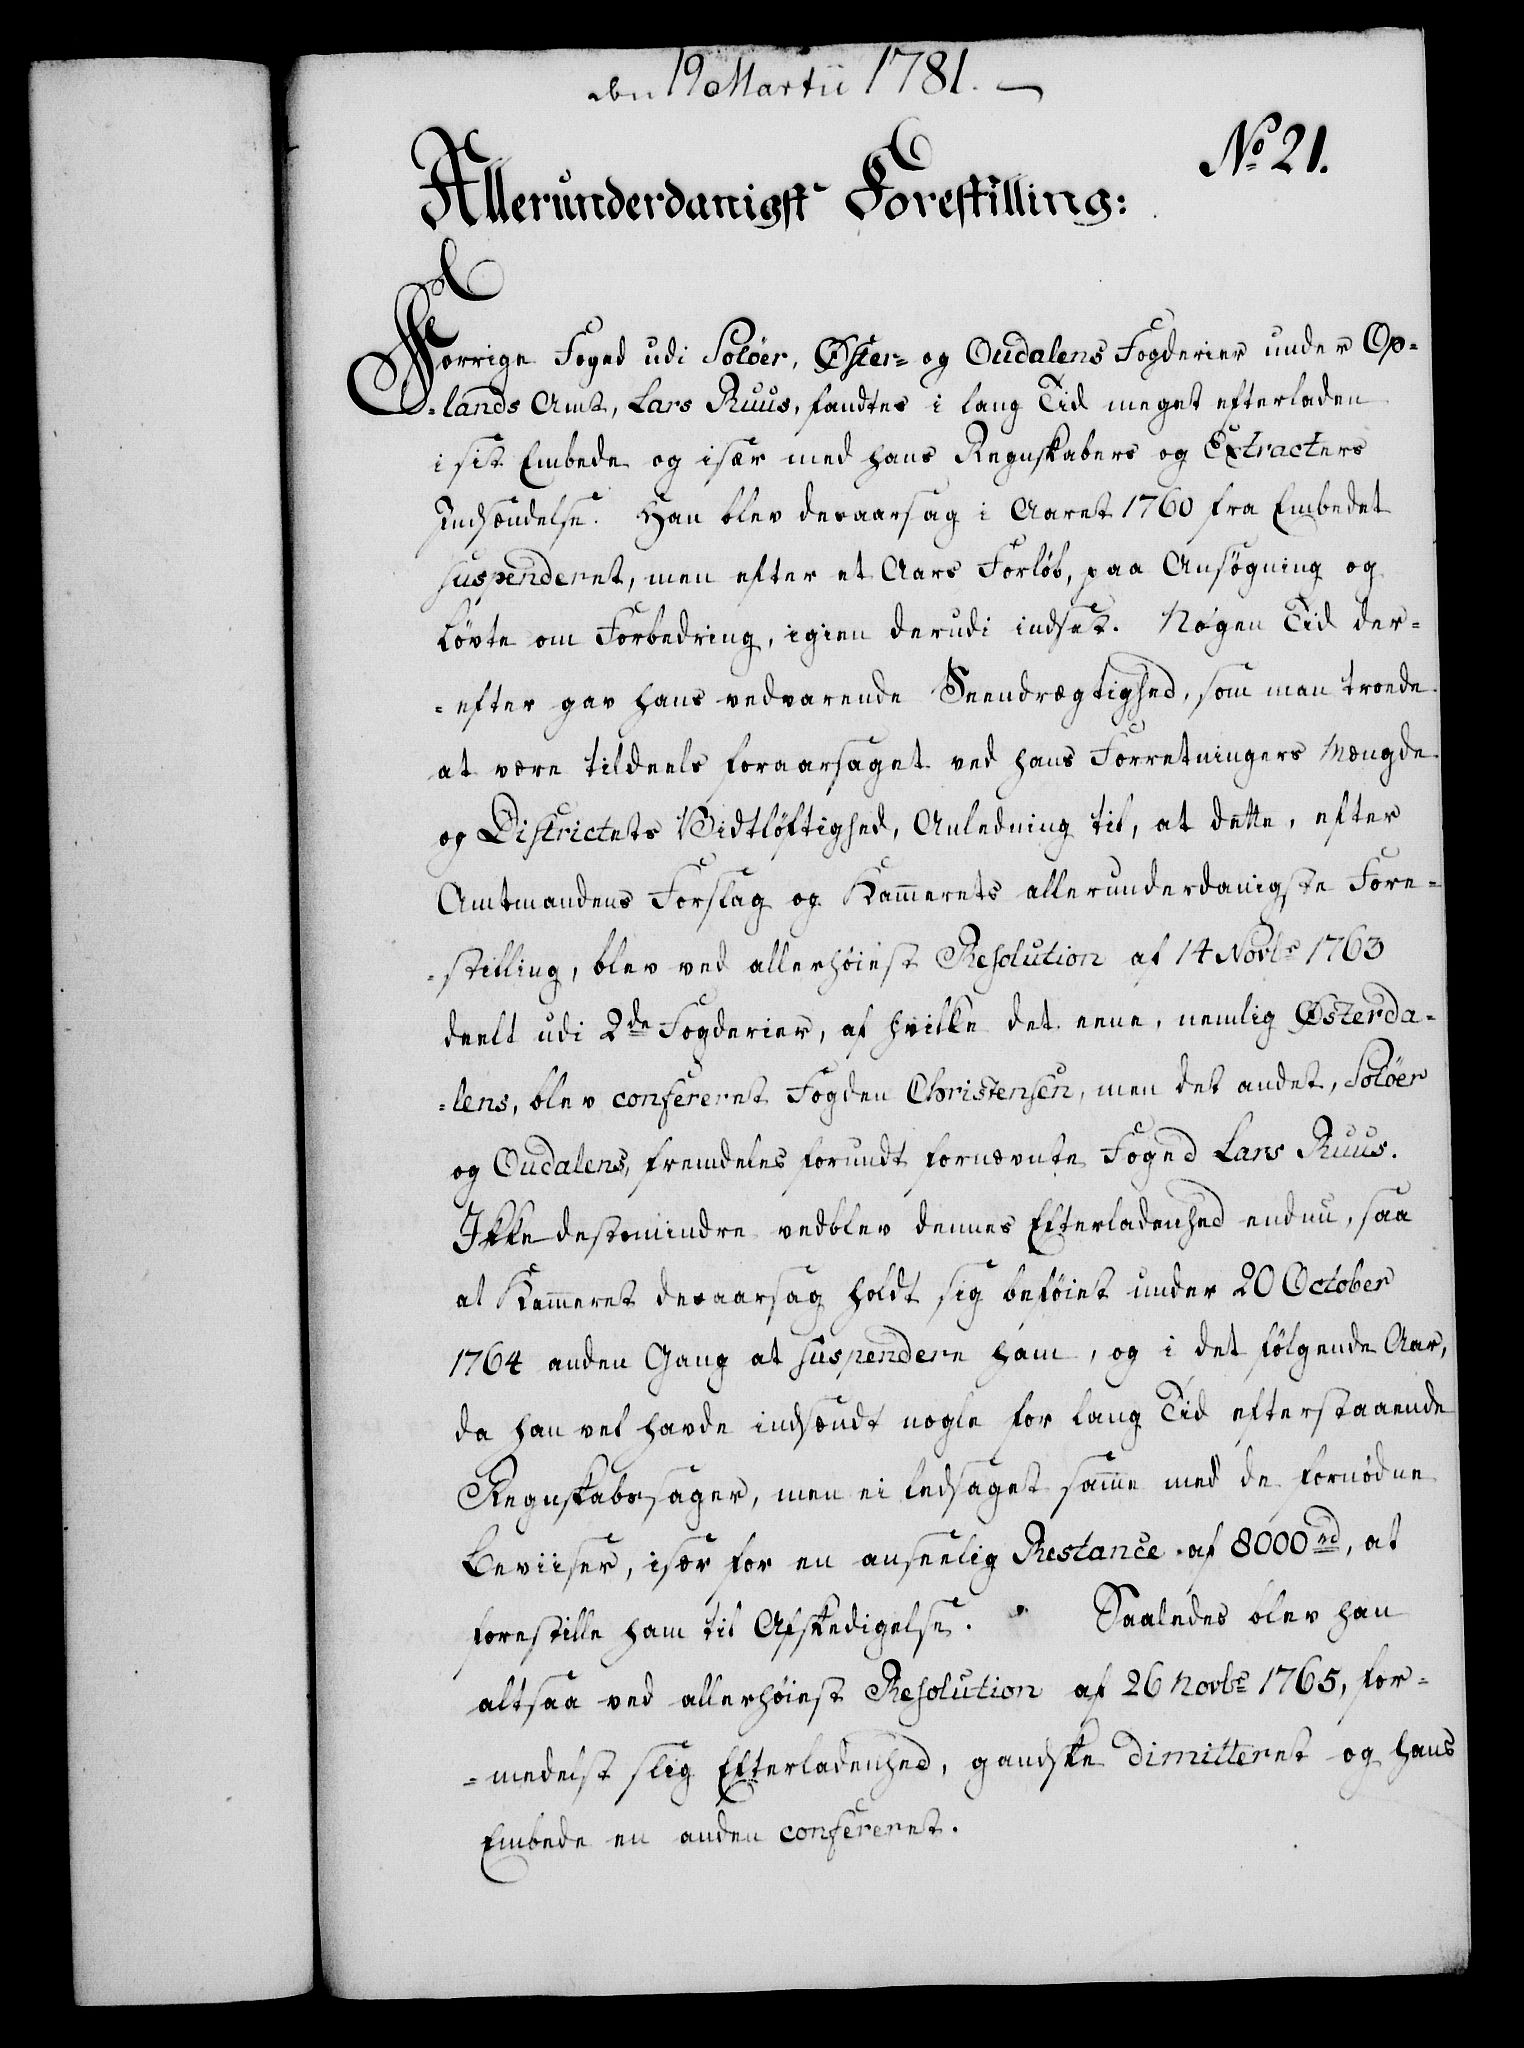 den 19 Martii 1781.
No 21.
Allerunderdanigst Forestilling:
Forrige Foged udi Solöer, Øster= og Oudalens Fogderier under Op-
-lands Amt, Lars Ruus, fandtes i lang Tid meget efterladen
i sit Embede og især med hans Regnskabers og Extracters
Indsændelse. Han blev desaarsag i Aaret 1760 fra Embedet
suspenderet, men efter et Aars Forløb, paa Ansøgning og
Løvte om Forbedring, igien derudi indsat. Nogen Tid der=
=efter gav hans vedvarende Seendrægtighed, som man troede
at være tildeels foraarsaget ved hans Forretningers Mængde
og Districtets Vidtløftighed, Anledning til, at dette, efter
Amtmandens Forslag og Kam̄erets allerunderdanigste Fore=
=stilling, blev ved allerhøiest Resolution af 14 Novbr 1763
deelt udi 2de Fogderier, af hvilke det eene, nemlig Østerda=
=lens, blev confereret Fogden Christensen, men det andet, Solöer
og Oudalens, fremdeles forundt fornævnte Foged Lars Ruus.
Ikke destomindre vedblev dennes Efterladenhed endnu, saa
at Kam̄eret desaarsag holdt sig beføiet under 20 October
1764 anden Gang at suspendere ham, og i det følgende Aar,
da han vel havde indsændt nogle for lang Tid efterstaaende
Regnskabssager, men ei ledsaget sam̄e med de fornødne
Beviiser, især for en anseelig Restance af 8000 rd, at
forestille ham til Afskedigelse. Saaledes blev han
altsaa ved allerhøiest Resolution af 26 Novbr 1765, for=
=medelst slig Efterladenhed, gandske dimitteret og hans
Embede en anden confereret.